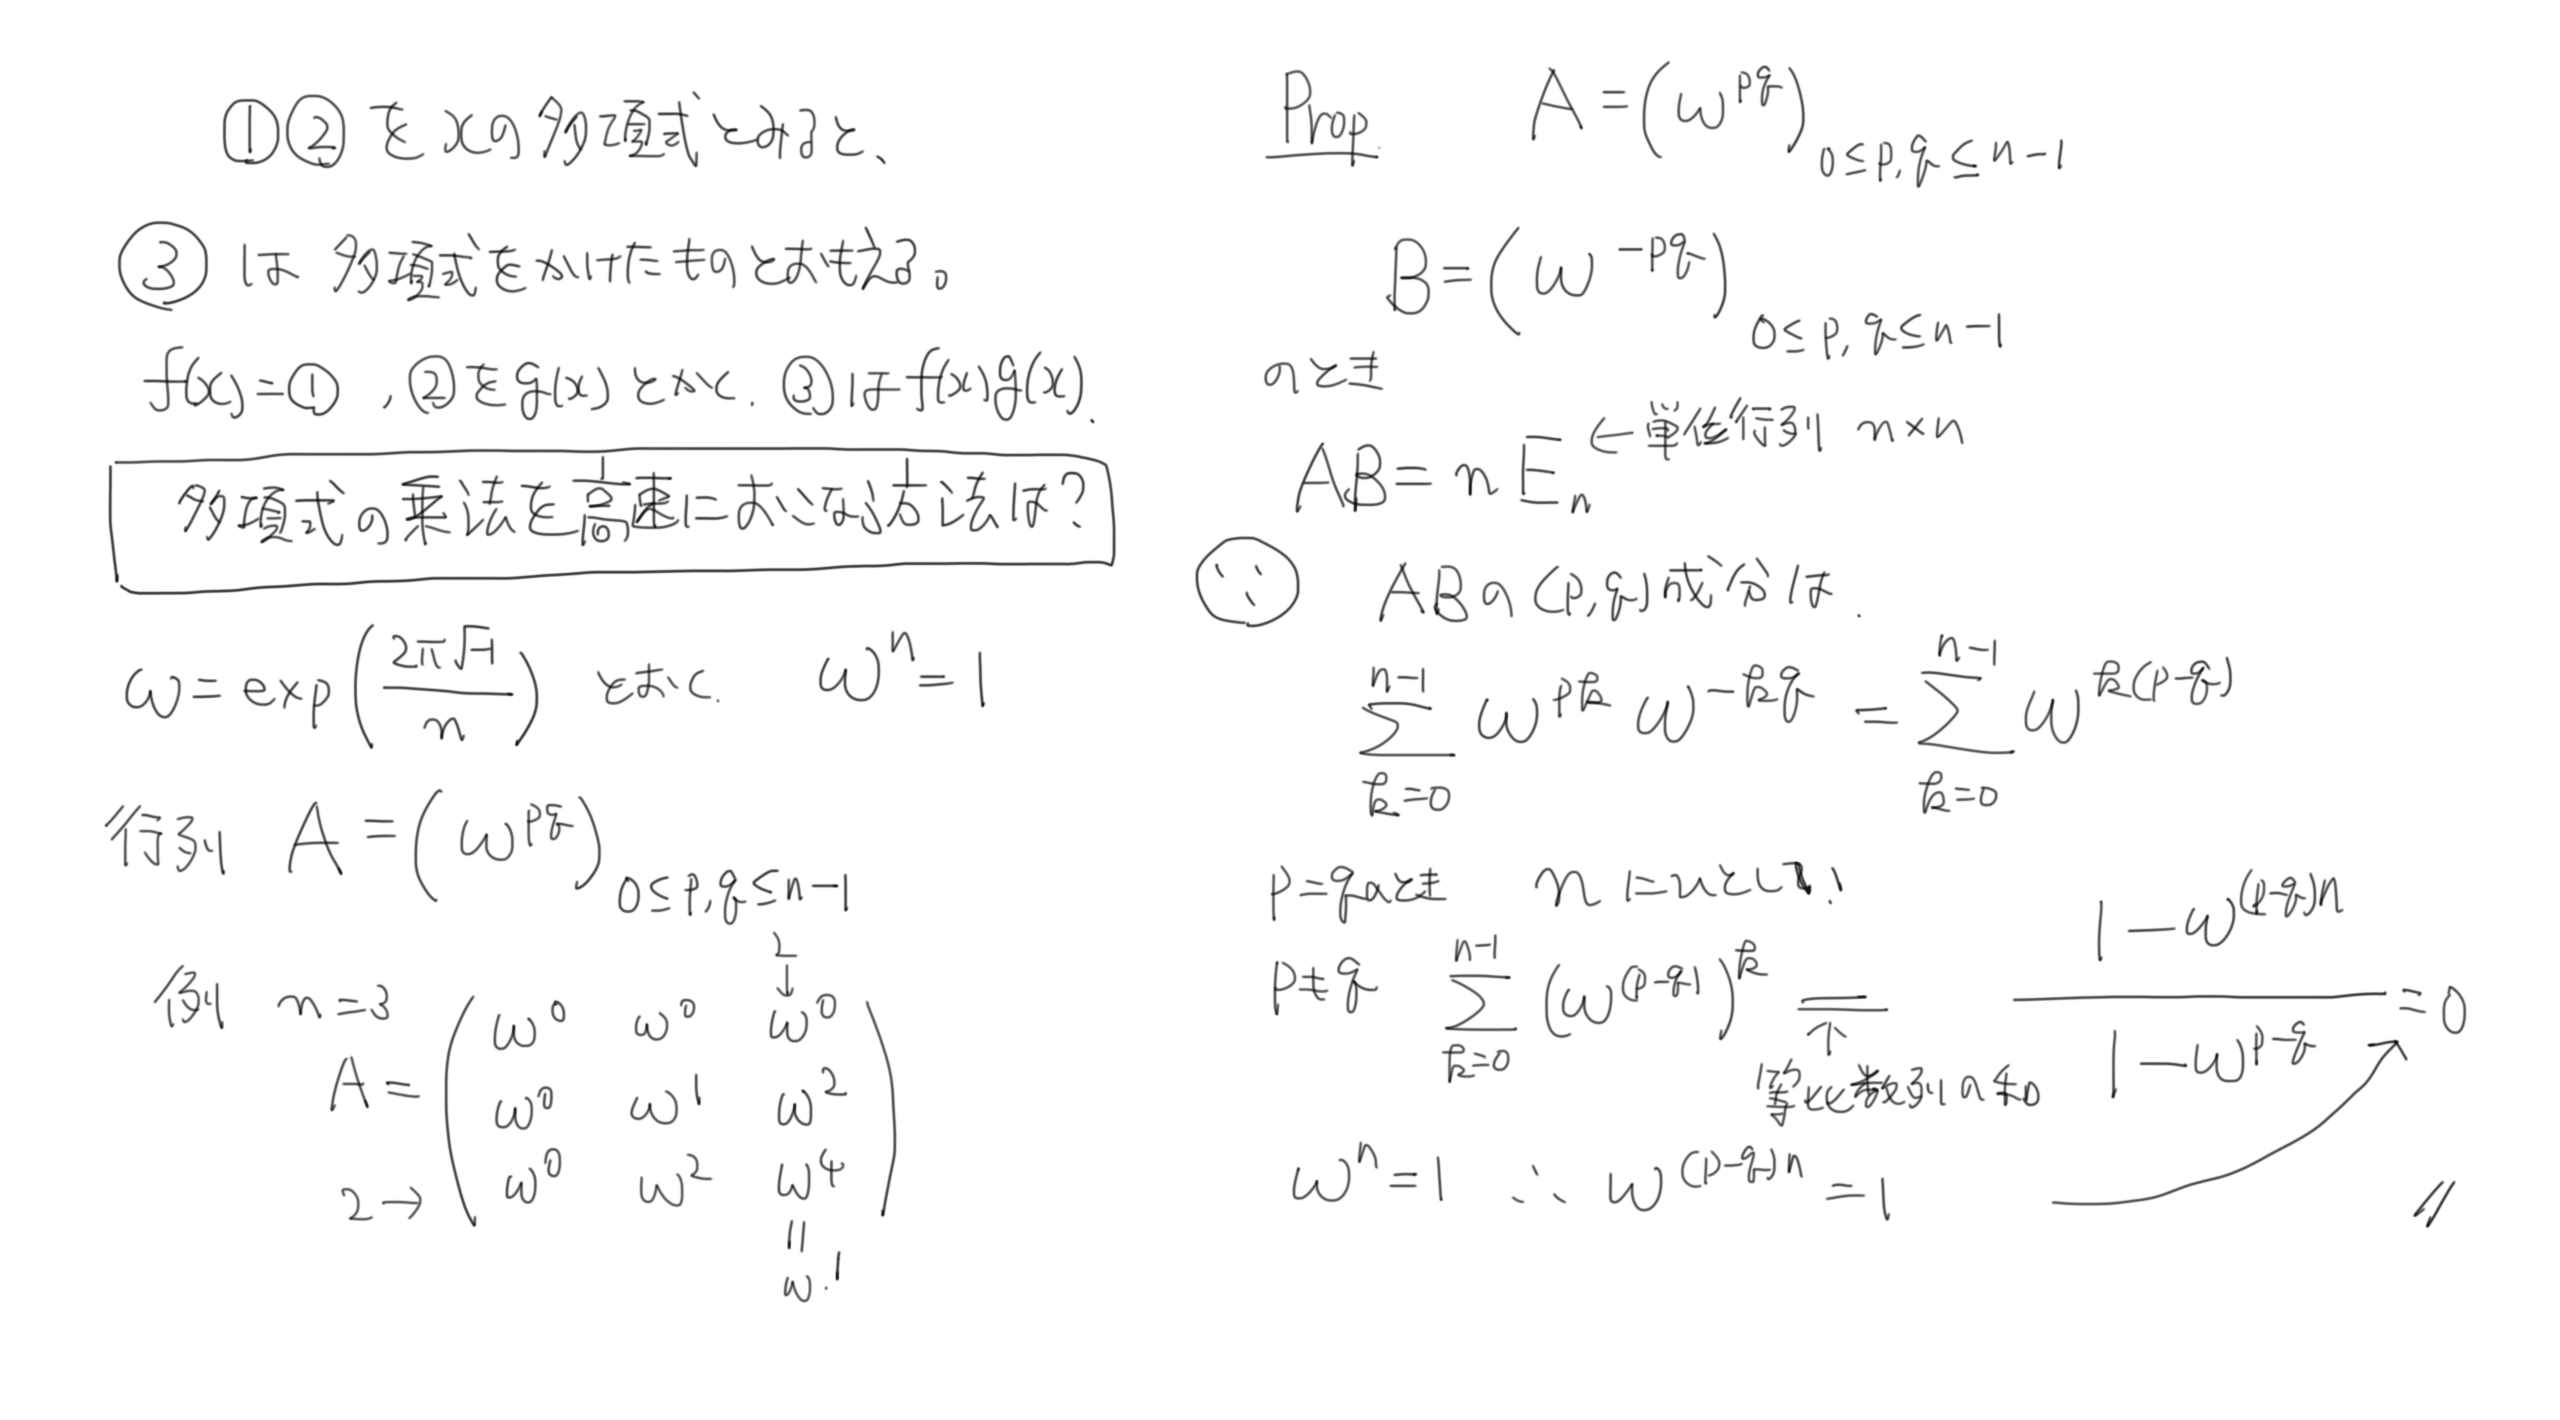 ①②をxの多項式とみると、
③は多項式をかけたものとおもえる。
f(x)=①,②をg(x)とかく.③はf(x)g(x).
多項式の乗法を高速におこなう方法は?
ω=exp(2π√-1/n)とおく. ω^n=1
行列 A=(ω^{pq})_{0≤p,q≤n-1}
2
↓
例 n=3
A=
2→
ω^0 ω^0 ω^0
ω^0 ω^1 ω^2
ω^0 ω^2 ω^4
=
ω^1
Prop. A=(ω^{pq})_{0≤p,q≤n-1}
B=(ω^{-pq})_{0≤p,q≤n-1}
のとき
AB=nE_n ←単位行列 n×n
∵ ABの(p,q)成分は.
∑_{k=0}^{n-1} ω^{pk} ω^{-kq} = ∑_{k=0}^{n-1} ω^{k(p-q)}
p=qのとき n
p≠q ∑_{k=0}^{n-1} (ω^{(p-q)})^k = (1-ω^{(p-q)n})/(1-ω^{p-q}) =0
↑
等比数列の和
ω^n=1 ∴ ω^{(p-q)n}=1 //